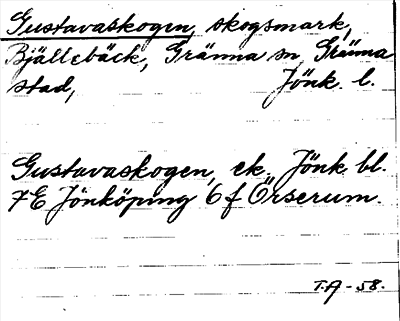 Gustavaskogen, skogsmark,
Bjällebäck, Gränna sn, Gränna
stad, Jönk. l.
Gustavaskogen, ek. Jönk. bl.
7E Jönköping 6 f Örserum.
T.A - 58.